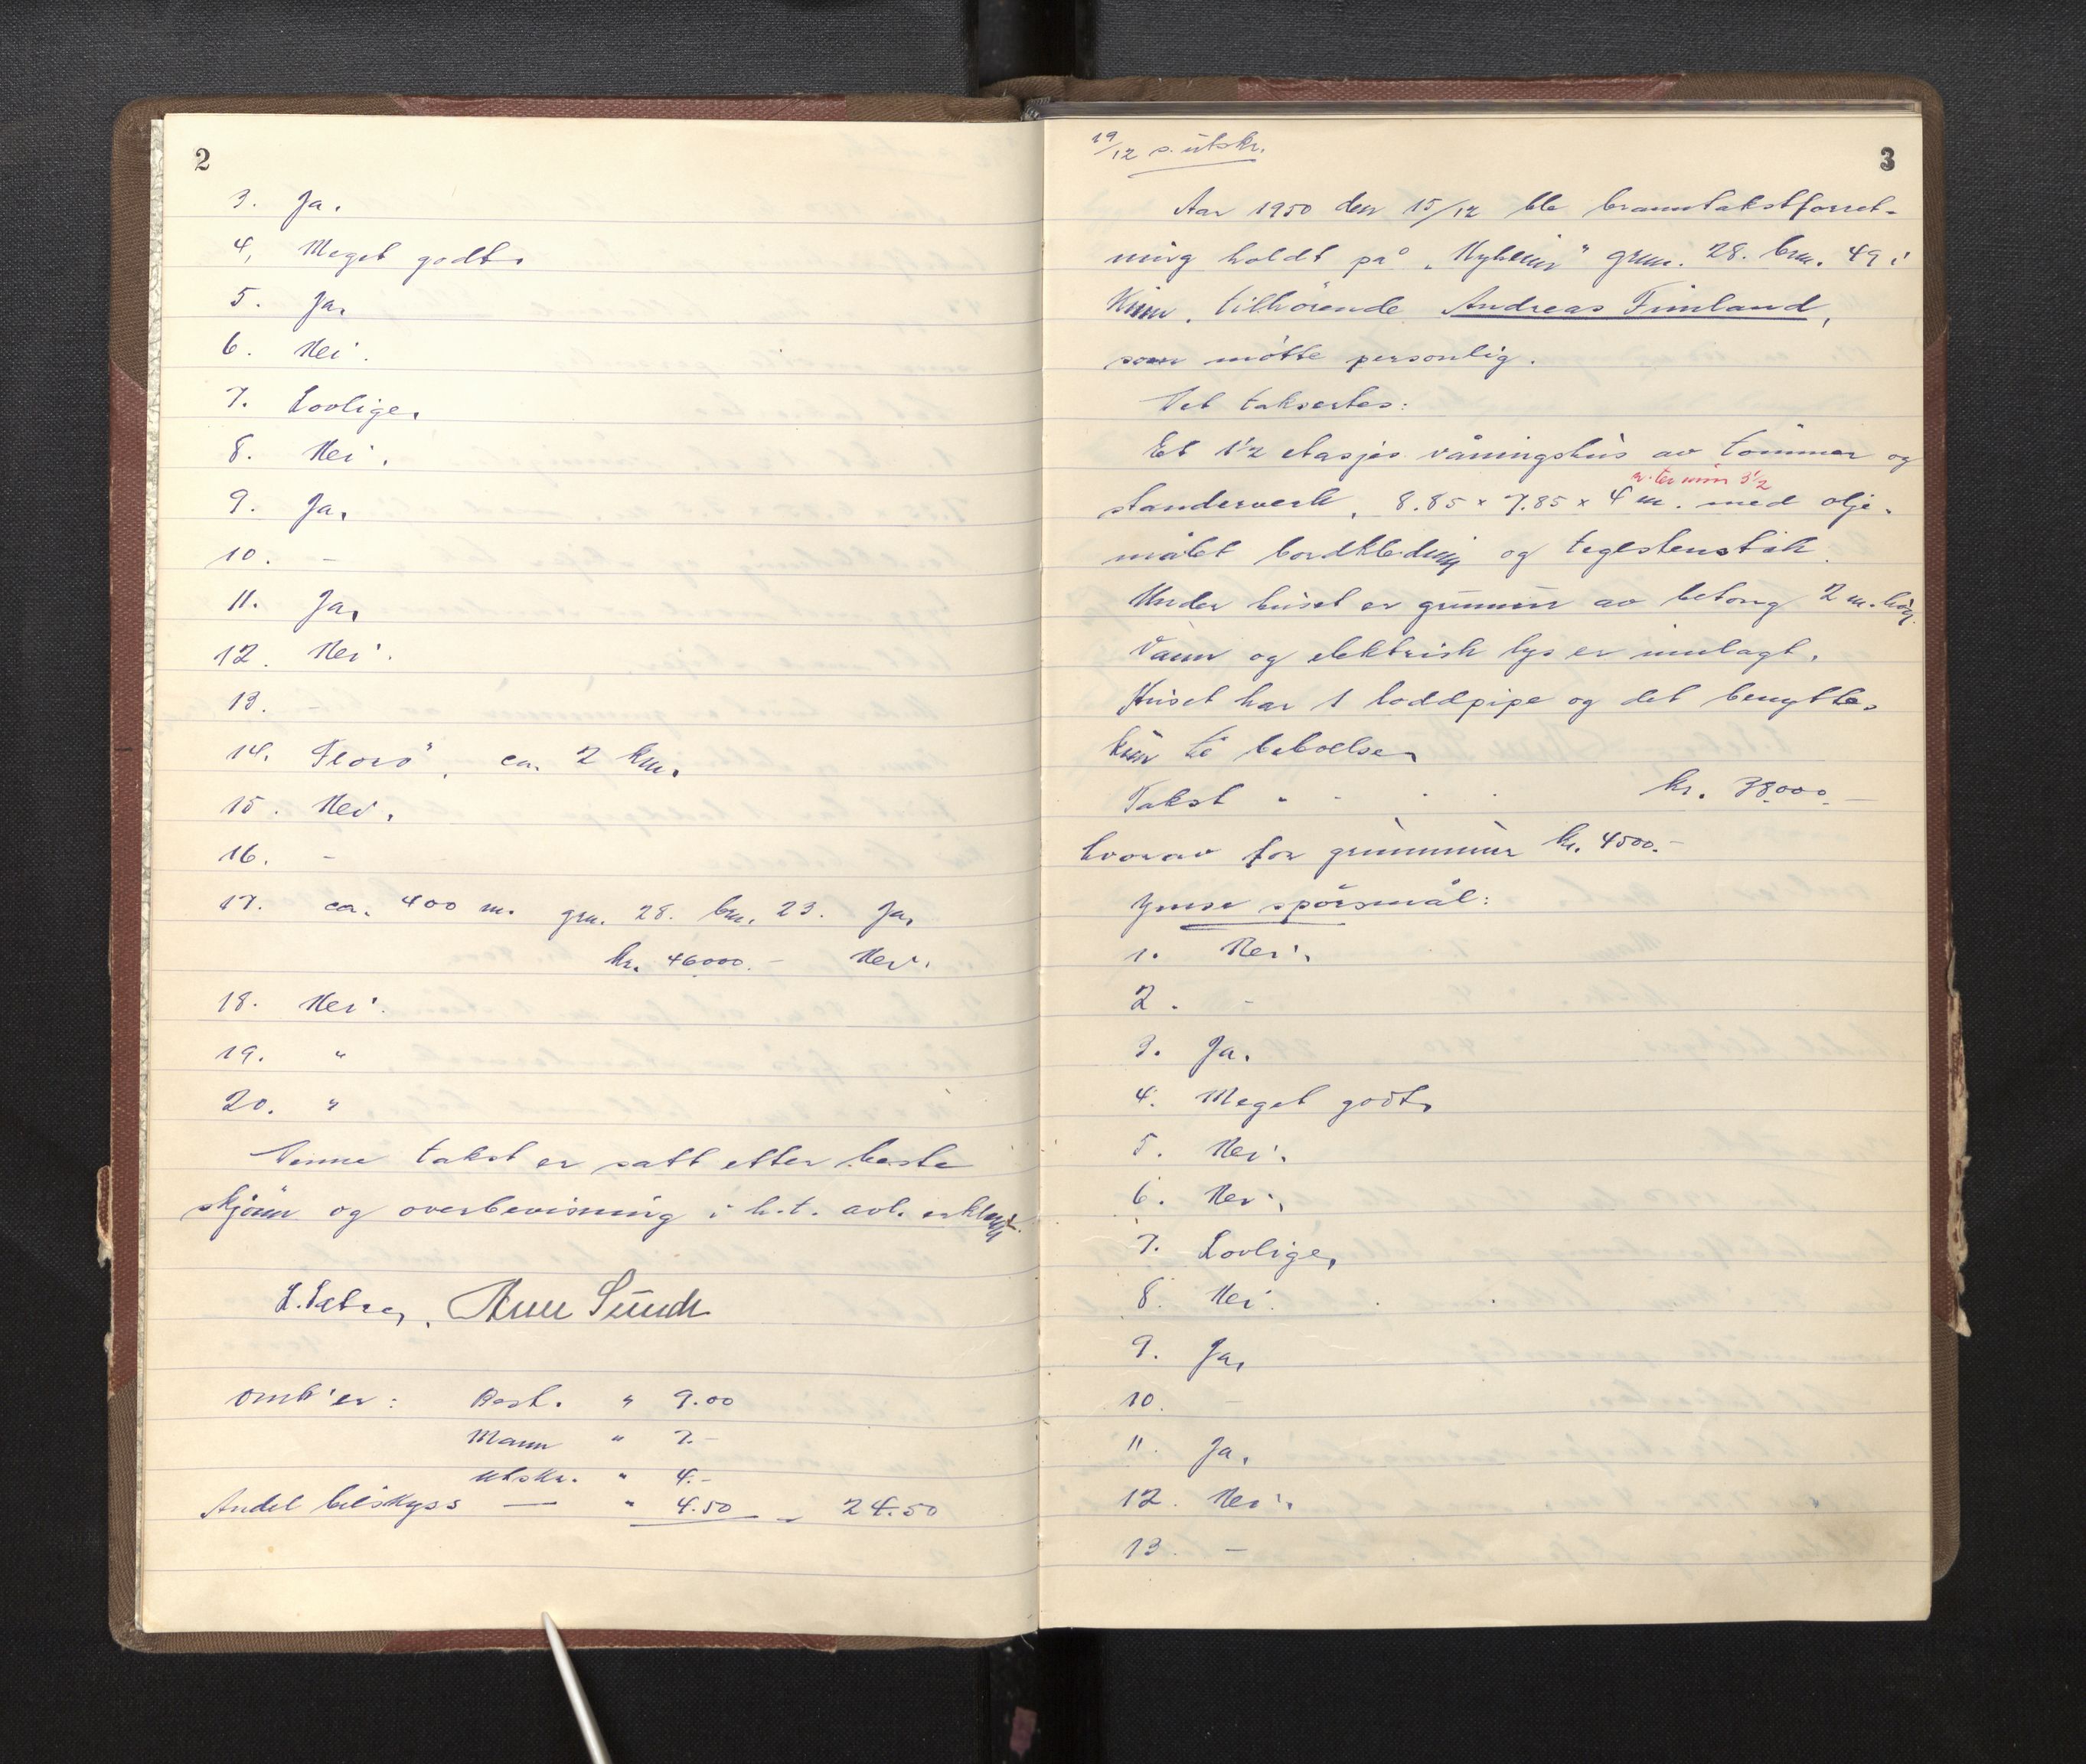 2
3. Ja.
4. Meget godt.
5. Ja.
6. Nei.
7. Lovlige.
8. Nei.
9. Ja.
10. -
11. Ja.
12. Nei.
13.
14. Florö, ca. 2 km.
15. Nei.
16. -
17. ca. 400 m. gnr. 28. bnr. 23. Ja.
kr. 46000.- Nei.
18. Nei.
19. "
20. "
Denne takst er satt etter beste
skjönn og overbevisning i h.t. avl. erklæring.
Arne Sunde
Omk'er: Best. " 9.00
Mann " 7.-
Utskr. " 4.-
Andel bilskyss — " 4.50 - 24.50
19/12 s. utskr.
3
Aar 1950 den 15/12 ble branntakstforret-
ning holdt på „Nyheim" gnr. 28. bnr. 49 i
Kinn, tilhörende Andreas Fimland,
som mötte personlig.
Det taksertes:
Et 1½ etasjes våningshus av tömmer og
standerverk, 8.85 x 7.85 x 4 m. med olje-
målet bordkledning og teglstenstak.
Under huset er grunnmur av betong 2 m. höy.
Vann og elektrisk lys er innlagt.
Huset har 1 loddpipe og det benyttes
kun til beboelse.
Takst " - . . kr. 38000.-
hvorav for grunnmur kr. 4500.-
Ymse spörsmål:
1. Nei.
2. -
3. Ja.
4. Meget godt.
5. Nei.
6. Nei.
7. Lovlige.
8. Nei.
9. Ja.
10. -
11. Ja.
12. Nei.
13. -